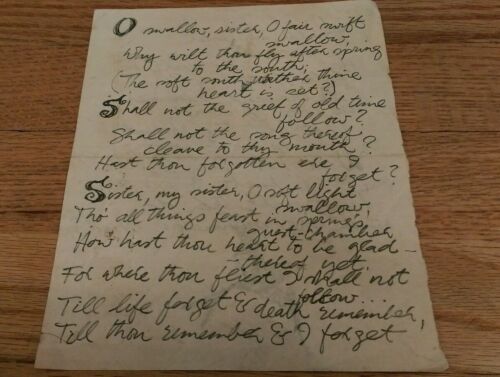 O swallow, sister, O fair swift
swallow,
Why wilt thou fly after spring
to the south,
(The soft south whither thine
heart is set?)
Shall not the grief of old time
follow?
Shall not the song thereof
cleave to thy mouth?
Hast thou forgotten ere I
forget?
Sister, my sister, O soft light
swallow,
Tho' all things feast in spring's
guest-chamber
How hast thou heart to be glad
thereof yet.
For where thou fliest I shall not
follow...
Till life forget & death remember,
Till thou remember & I forget